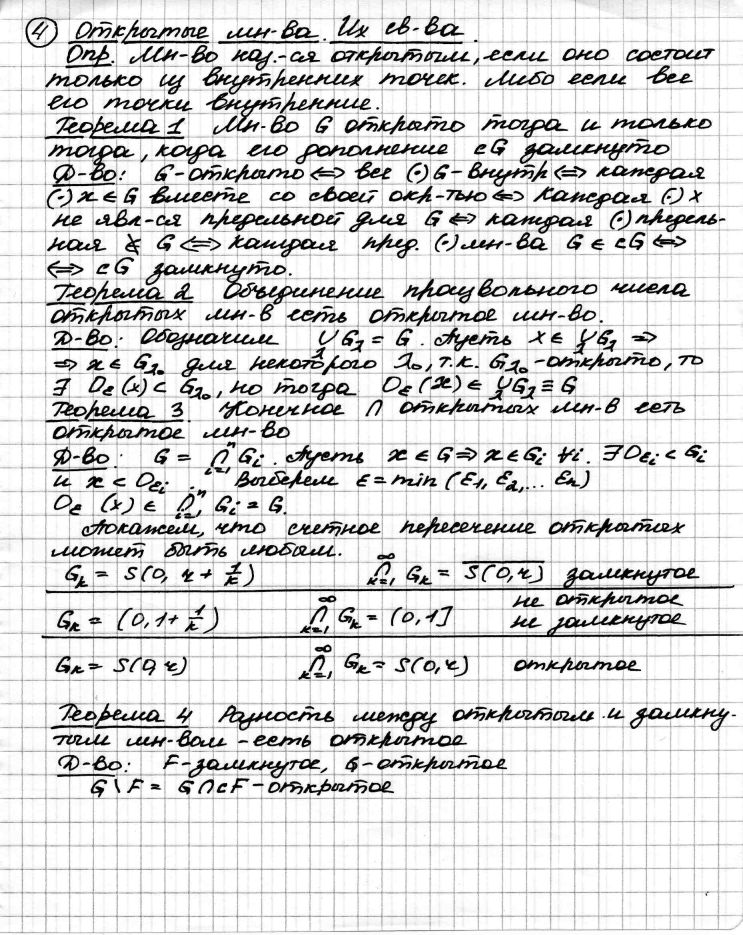 ④ Открытые мн-ва. Их св-ва.
Опр. Мн-во наз.-ся открытым, если оно состоит
только из внутренних точек. Либо если все
его точки внутренние.
Теорема 1 Мн-во G открыто тогда и только
тогда, когда его дополнение cG замкнуто
Д-во: G-открыто ⇔ все (·) G-внутр ⇔ каждая
(·) x ∈ G вместе со своей окр-тью ⇔ Каждая (·) x
не явл-ся предельной для G ⇔ каждая (·) предель-
ная G ⇔ каждая пред. (·) мн-ва G ∈ cG ⇔
⇔ cG замкнуто.
Теорема 2 Объединение произвольного числа
открытых мн-в есть открытое мн-во.
Д-во: Обозначим ⋃_λ G_λ = G. Пусть x ∈ ⋃_λ G_λ ⇒
⇒ x ∈ G_λ₀ для некоторого λ₀, т.к. G_λ₀-открыто, то
∃ O_ε(x) ⊂ G_λ₀, но тогда O_ε(x) ∈ ⋃_λ G_λ ≡ G
Теорема 3 Конечное ∩ открытых мн-в есть
открытое мн-во
Д-во: G = ⋂_{i=1}^n G_i. Пусть x ∈ G ⇒ x ∈ G_i ∀i. ∃ O_{ε_i} ⊂ G_i
и x ⊂ O_{ε_i}. Выберем ε = min (ε₁, ε₂, ... ε_n)
O_ε (x) ∈ ⋂_{i=1}^n G_i = G.
Покажем, что счетное пересечение открытых
может быть любым.
G_k = S(0, r + 1/k) ⋂_{k=1}^∞ G_k = \overline{S(0,r)} замкнутое
G_k = (0, 1 + 1/k) ⋂_{k=1}^∞ G_k = (0, 1] не открытое
не замкнутое
G_k = S(0, r) ⋂_{k=1}^∞ G_k = S(0, r) открытое
Теорема 4 Разность между открытым и замкну-
тым мн-вом - есть открытое
Д-во: F-замкнутое, G-открытое
G \ F = G ∩ cF - открытое